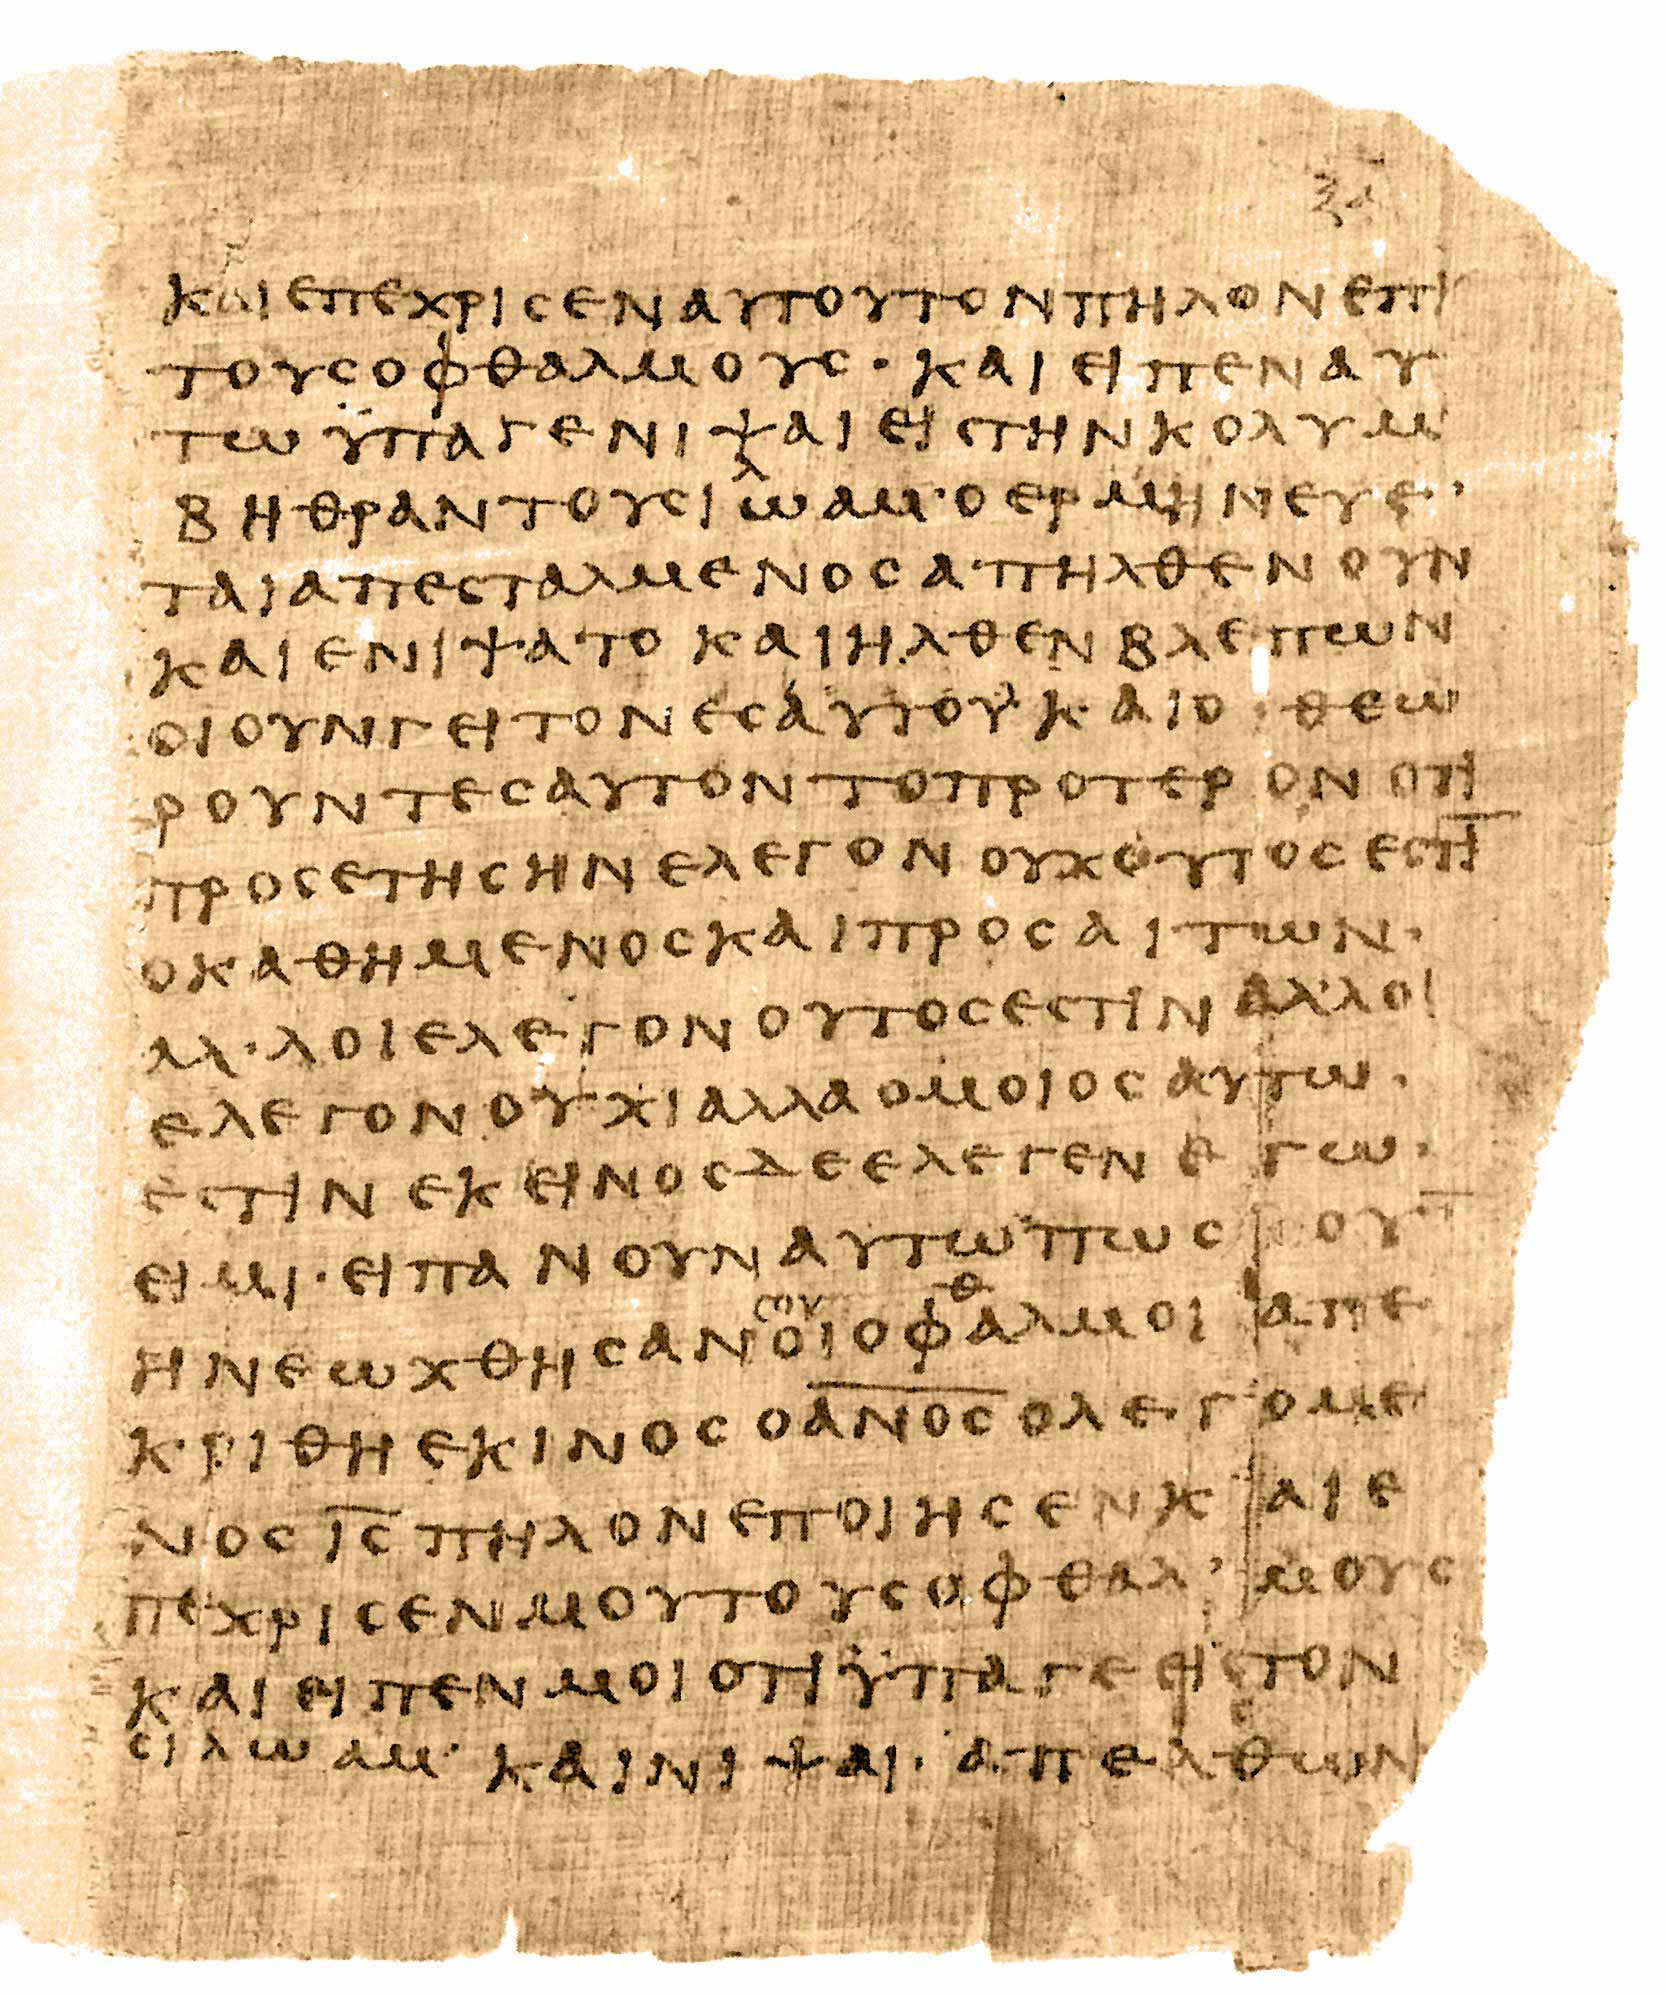 ξα
ΚΑΙΕΠΕΧΡΙϹΕΝΑΥΤΟΥΤΟΝΠΗΛΟΝΕΠΙ
ΤΟΥϹΟΦΘΑΛΜΟΥϹ·ΚΑΙΕΙΠΕΝΑΥ
ΤΩΫΠΑΓΕΝΙΨΑΙΕΙϹΤΗΝΚΟΛΥΜ
ΒΗΘΡΑΝΤΟΥϹΙΛΩΑΜ·ΟΕΡΜΗΝΕΥΕ·
ΤΑΙΑΠΕϹΤΑΛΜΕΝΟϹΑΠΗΛΘΕΝΟΥΝ
ΚΑΙΕΝΙΨΑΤΟΚΑΙΗΛΘΕΝΒΛΕΠΩΝ
ΟΙΟΥΝΓΕΙΤΟΝΕϹΑΥΤΟΥΚΑΙΟΙΘΕΩ
ΡΟΥΝΤΕϹΑΥΤΟΝΤΟΠΡΟΤΕΡΟΝΟΤΙ
ΠΡΟϹΕΤΗϹΗΝΕΛΕΓΟΝΟΥΧΟΥΤΟϹΕϹΤΙ̅
ΟΚΑΘΗΜΕΝΟϹΚΑΙΠΡΟϹΑΙΤΩΝ·
ΑΛ·ΛΟΙΕΛΕΓΟΝΟΥΤΟϹΕϹΤΙΝΑΛ·ΛΟΙ
ΕΛΕΓΟΝΟΥΧΙΑΛΛΑΟΜΟΙΟϹΑΥΤΩ·
ΕϹΤΙΝΕΚΕΙΝΟϹΔΕΕΛΕΓΕΝΕΓΩ·
ΕΙΜΙ·ΕΙΠΑΝΟΥΝΑΥΤΩΠΩϹΟΥ̅
ΗΝΕΩΧΘΗϹΑΝϹΟΥΟΙΟΦΘΑΛΜΟΙΑΠΕ
ΚΡΙΘΗΕΚΙΝΟϹΟΑ̅Ν̅Ο̅Ϲ̅ΟΛΕΓΟΜΕ
ΝΟϹΙ̅Ϲ̅ΠΗΛΟΝΕΠΟΙΗϹΕΝΚΑΙΕ
ΠΕΧΡΙϹΕΝΜΟΥΤΟΥϹΟΦΘΑΛ'ΜΟΥϹ
ΚΑΙΕΙΠΕΝΜΟΙΟΤΙΫΠΑΓΕΕΙϹΤΟΝ
ϹΙΛΩΑΜ·ΚΑΙΝΙΨΑΙ·ΑΠΕΛΘΩΝ